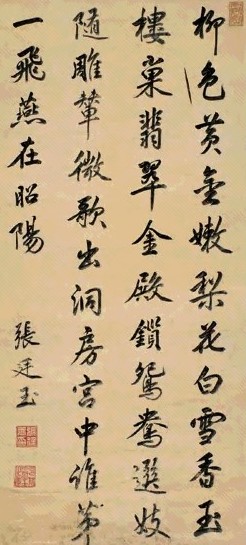 柳色黄金嫩梨花白雪香玉
樓巢翡翠金殿鎖鴛鴦選妓
随雕輦徵歌出洞房宫中誰第
一飛燕在昭陽
張廷玉